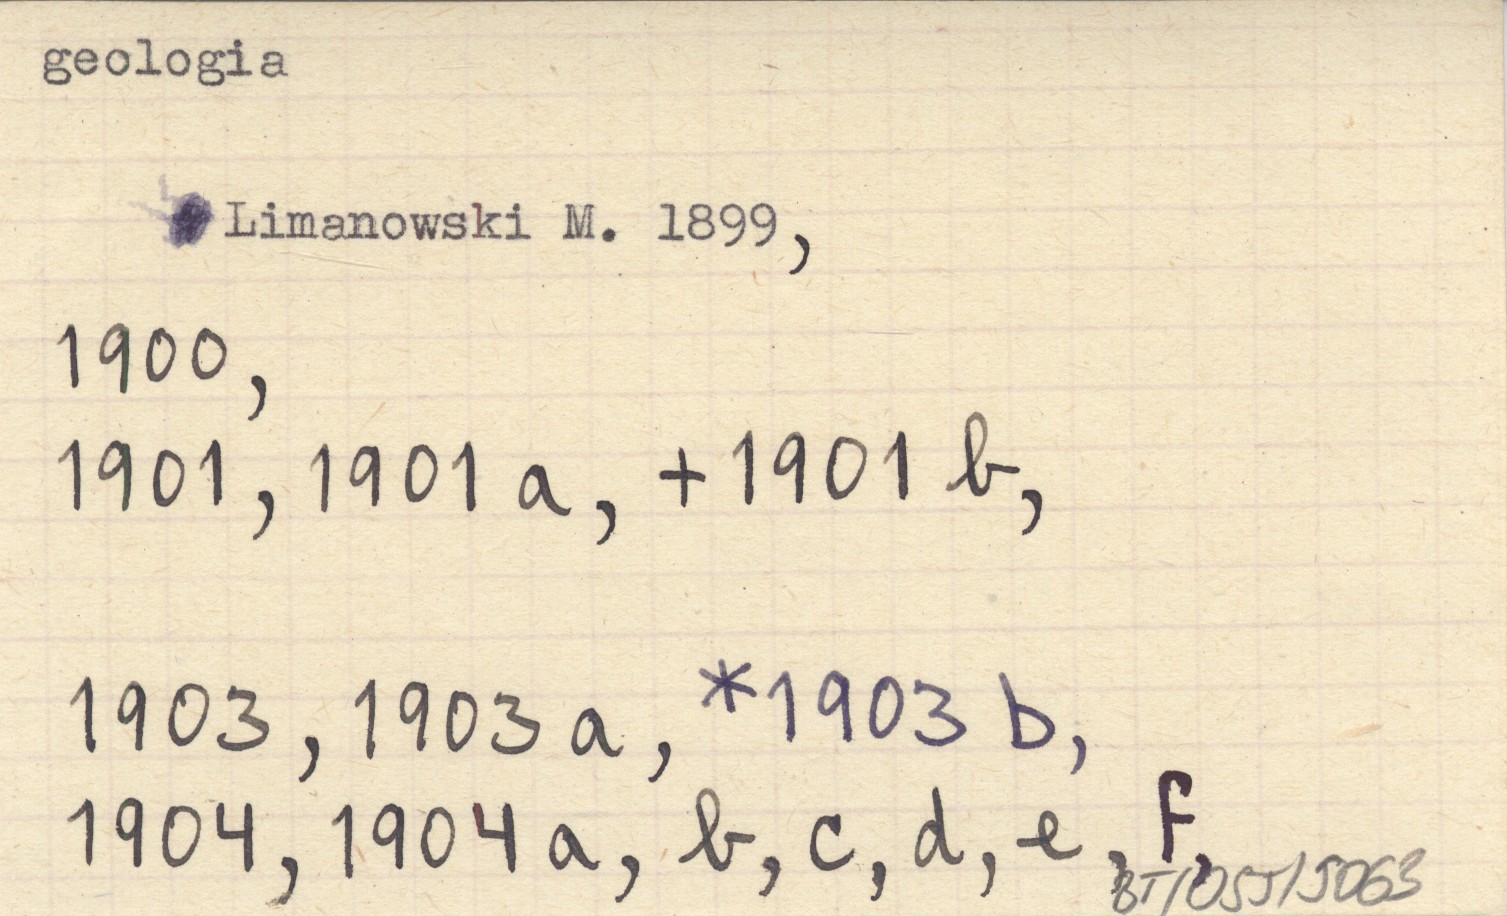 geologia
Limanowski M. 1899,
1900,
1901, 1901 a, +1901 b,
1903, 1903 a, *1903 b,
1904, 1904 a, b, c, d, e, f,
BT/OSJ/5063